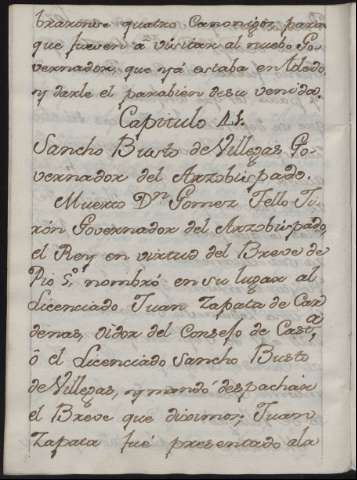 braronse quatro Canonigos, para
que fuesen à visitar al nuebo Go-
vernador, que yá estaba en toledo,
y darle el parabien desu venida.
Capitulo 41.
Sancho Busto de Villegas Go-
vernador del Arzobispado.
Muerto Dn. Gomez Tello Ji-
rón Governador del Arzobispado,
el Rey en virtud del Breve de
Pio 5.º nombró en su lugar al
Licenciado Juan Zapata de Car-
denas, Oidor del Consejo de Casta,
ó el Licenciado Sancho Busto
de Villegas, y mandó despachar
el Breve que diximos; Juan
Zapata fué presentado ala